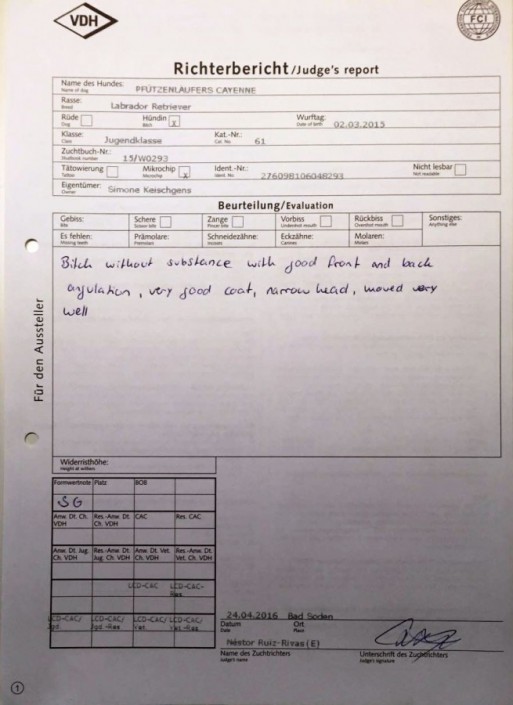 VDH
FCI
Richterbericht/Judge's report
Name des Hundes: PFÜTZENLÄUFERS CAYENNE
Name of dog
Rasse: Labrador Retriever
Breed
Rüde Hündin x Wurftag: 02.03.2015
Dog Bitch Date of birth
Klasse: Jugendklasse Kat.-Nr.: 61
Class Cat. No.
Zuchtbuch-Nr.: 15/W0293
Studbook number
Tätowierung Mikrochip x Ident.-Nr.: 276098106048293 Nicht lesbar
Tattoo Microchip Ident. No. Not readable
Eigentümer: Simone Keischgens
Owner
Beurteilung/Evaluation
Gebiss: Schere Zange Vorbiss Rückbiss Sonstiges:
Bite Scissor bite Pincer bite Undershot mouth Overshot mouth Anything else
Es fehlen: Prämolare: Schneidezähne: Eckzähne: Molaren:
Missing teeth Premolars Incisors Canines Molars
Bitch without substance with good front and back
angulation, very good coat, narrow head, moved very
well
Für den Aussteller
Widerristhöhe:
Height at withers
Formwertnote Platz BOB
SG
Anw. Dt. Ch. VDH Res.-Anw. Dt. Ch. VDH CAC Res. CAC
Anw. Dt. Jug. Ch. VDH Res.-Anw. Dt. Jug. Ch. VDH Anw. Dt. Vet. Ch. VDH Res.-Anw. Dt. Vet. Ch. VDH
LCD-CAC LCD-CAC-Res
LCD-CAC/Jgd. LCD-CAC/Jgd.-Res LCD-CAC/Vet. LCD-CAC/Vet.-Res
24.04.2016 Bad Soden
Datum Ort
Date Place
Néstor Ruiz-Rivas(E)
Name des Zuchtrichters Unterschrift des Zuchtrichters
Judge's name Judge's signature
1